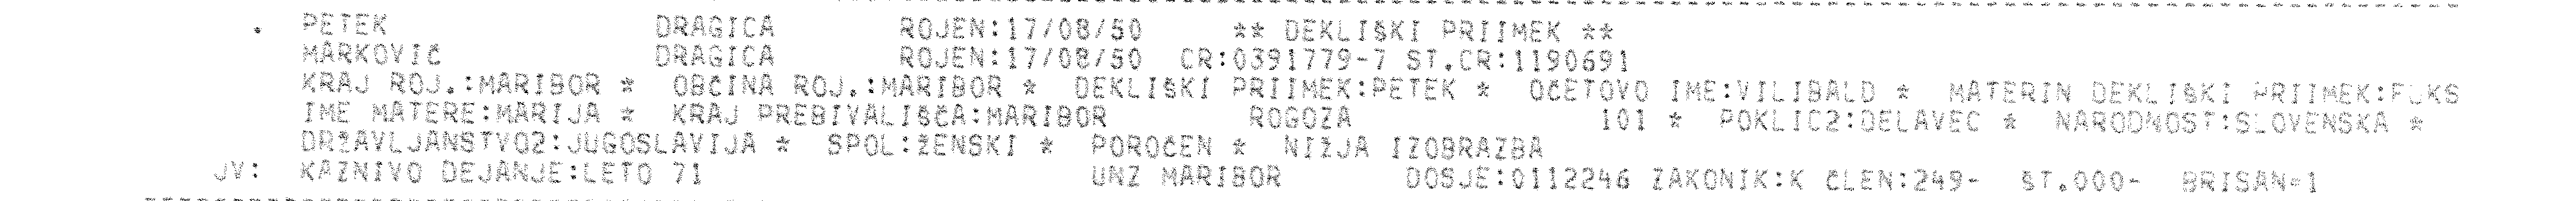 . PETEK DRAGICA ROJEN:17/08/50 ** DEKLIŠKI PRIIMEK **
MARKOVIČ DRAGICA ROJEN:17/08/50 CR:0391779-7 ST.CR:1190691
KRAJ ROJ.:MARIBOR * OBČINA ROJ.:MARIBOR * DEKLIŠKI PRIIMEK:PETEK * OČETOVO IME:VILIBALD * MATERIN DEKLIŠKI PRIIMEK:FUKS
IME MATERE:MARIJA * KRAJ PREBIVALIŠČA:MARIBOR ROGOZA 101 * POKLIC2:DELAVEC * NARODNOST:SLOVENSKA *
DRŽAVLJANSTVO2:JUGOSLAVIJA * SPOL:ŽENSKI * POROČEN * NIŽJA IZOBRAZBA
JV: KAZNIVO DEJANJE:LETO 71 UNZ MARIBOR DOSJE:0112246 ZAKONIK:K ČLEN:249- ŠT.000- BRISAN=1